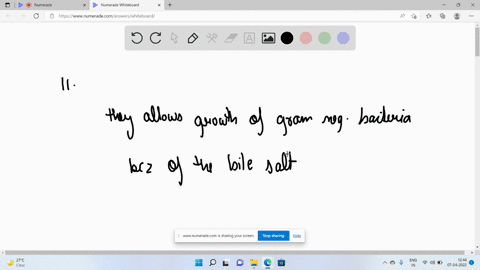 Numerade
Numerade Whiteboard
https://www.numerade.com/answers/whiteboard/
11.
they allows growth of gram neg. bacteria
bcz of the bile salt
www.numerade.com is sharing your screen.
Stop sharing
Hide
27°C
ENG
IN